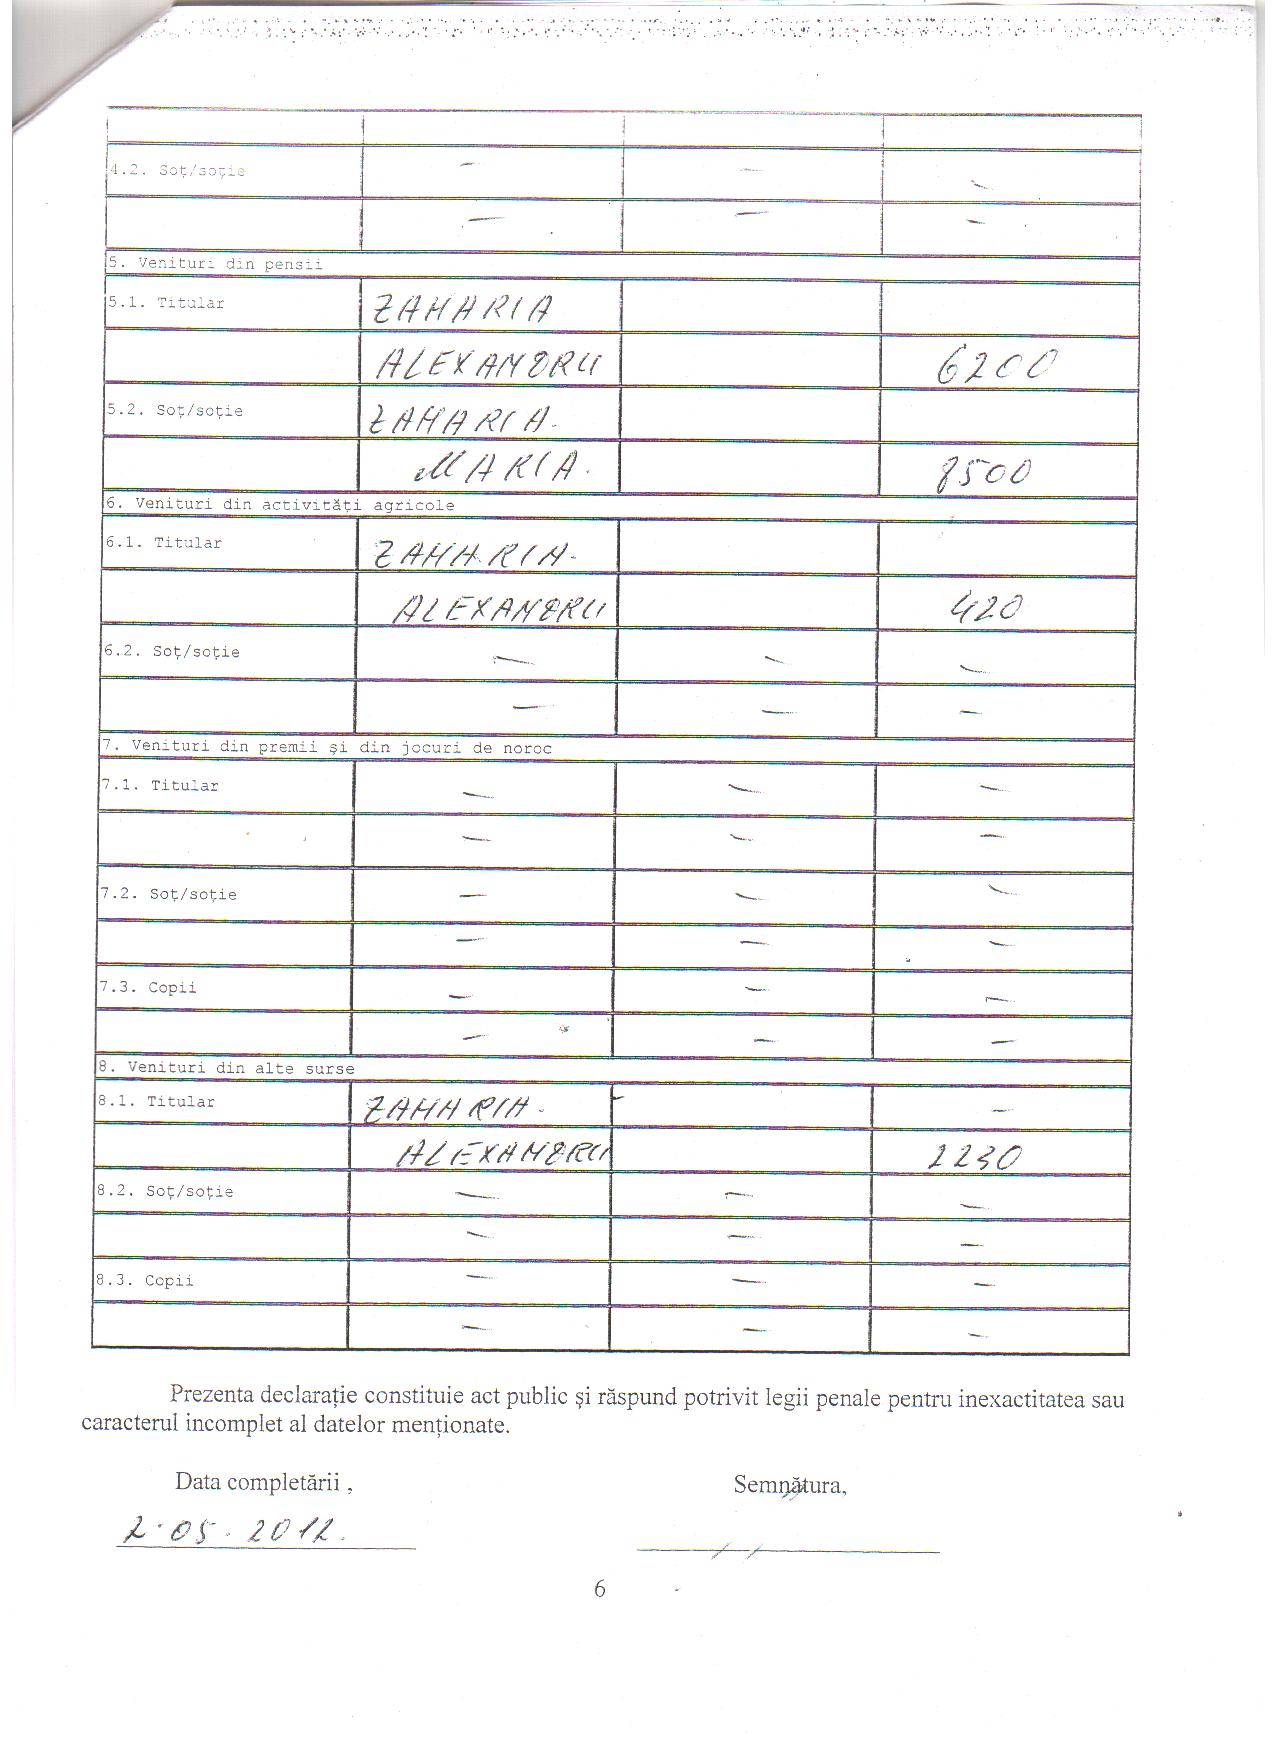 4.2. Soț/soție — — —
— — —
5. Venituri din pensii
5.1. Titular ZAHARIA
ALEXANDRU 6200
5.2. Soț/soție ZAHARIA.
MARIA. 8500
6. Venituri din activități agricole
6.1. Titular ZAHARIA-
ALEXANDRU 420
6.2. Soț/soție — — —
— — —
7. Venituri din premii și din jocuri de noroc
7.1. Titular — — —
— — —
7.2. Soț/soție — — —
— — —
7.3. Copii — — —
— — —
8. Venituri din alte surse
8.1. Titular ZAHARIA- — —
ALEXANDRU 2230
8.2. Soț/soție — — —
— — —
8.3. Copii — — —
— — —
Prezenta declarație constituie act public și răspund potrivit legii penale pentru inexactitatea sau
caracterul incomplet al datelor menționate.
Data completării , Semnătura,
2.05.2012.
6